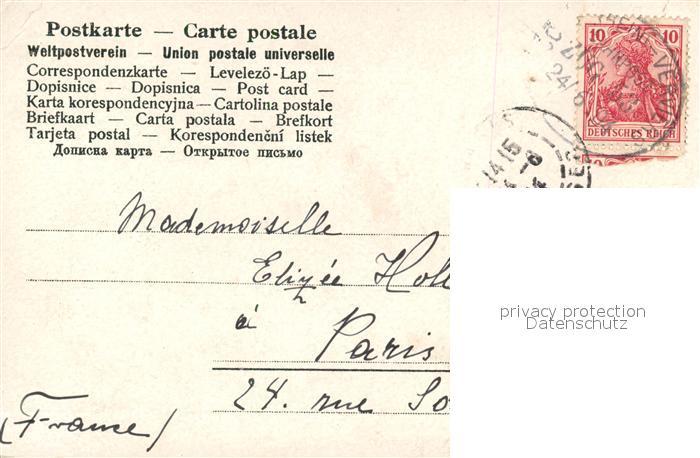 Postkarte — Carte postale
Weltpostverein — Union postale universelle
Correspondenzkarte — Levelező-Lap —
Dopisnice — Dopisnica — Post card —
Karta korespondencyjna — Cartolina postale
Briefkaart — Carta postala — Brefkort
Tarjeta postal — Korespondenční listek
Дописна карта — Открытое письмо
10 10
DEUTSCHES REICH
Mademoiselle
Elizée Holl
à
Paris
24. rue So
(France)
privacy protection
Datenschutz